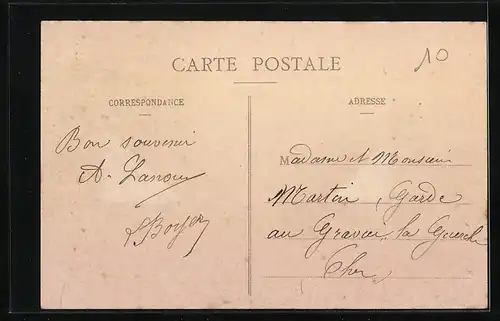 10
CARTE POSTALE
CORRESPONDANCE
ADRESSE
Bon souvenir
A. Lanoue
Madame et Monsieur
Martin, Garde
au Gravier, la Guerche
Cher